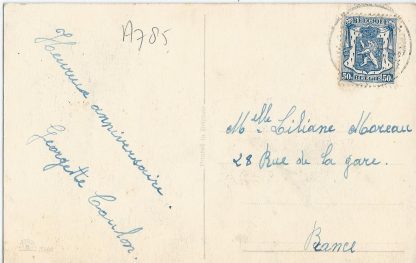 A785
Heureux anniversaire.
Georgette Coulon.
BELGIQUE
50c 50c
BELGIE
Melle Liliane Moreau
28 Rue de la gare.
Rance